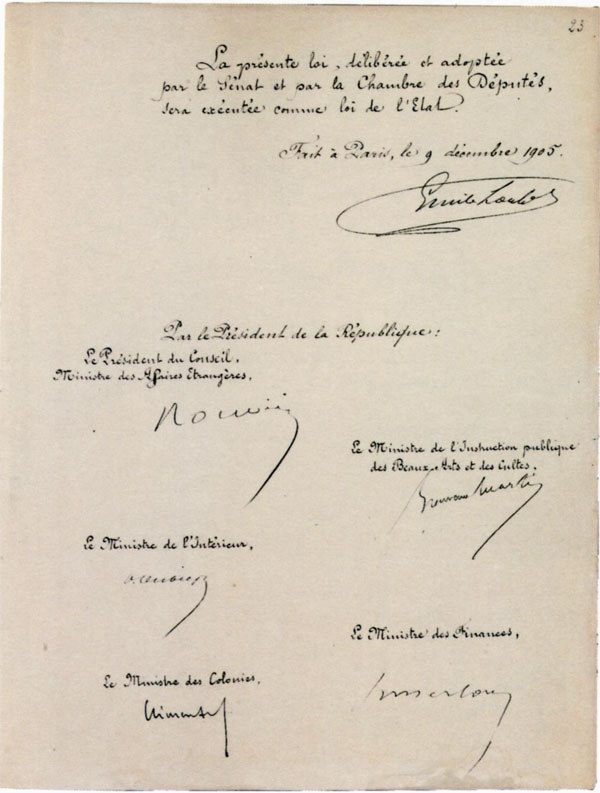 23
La présente loi, délibérée et adoptée
par le Sénat et par la Chambre des Députés,
sera exécutée comme loi de l'Etat.
Fait à Paris, le 9 décembre 1905.
Emile Loubet
Par le Président de la République:
Le Président du Conseil,
Ministre des Affaires Etrangères,
Rouvier
Le Ministre de l'Instruction publique
des Beaux-Arts et des Cultes.
Bienvenu Martin
Le Ministre de l'Intérieur,
Le Ministre des Finances,
Le Ministre des Colonies,
Clémentel